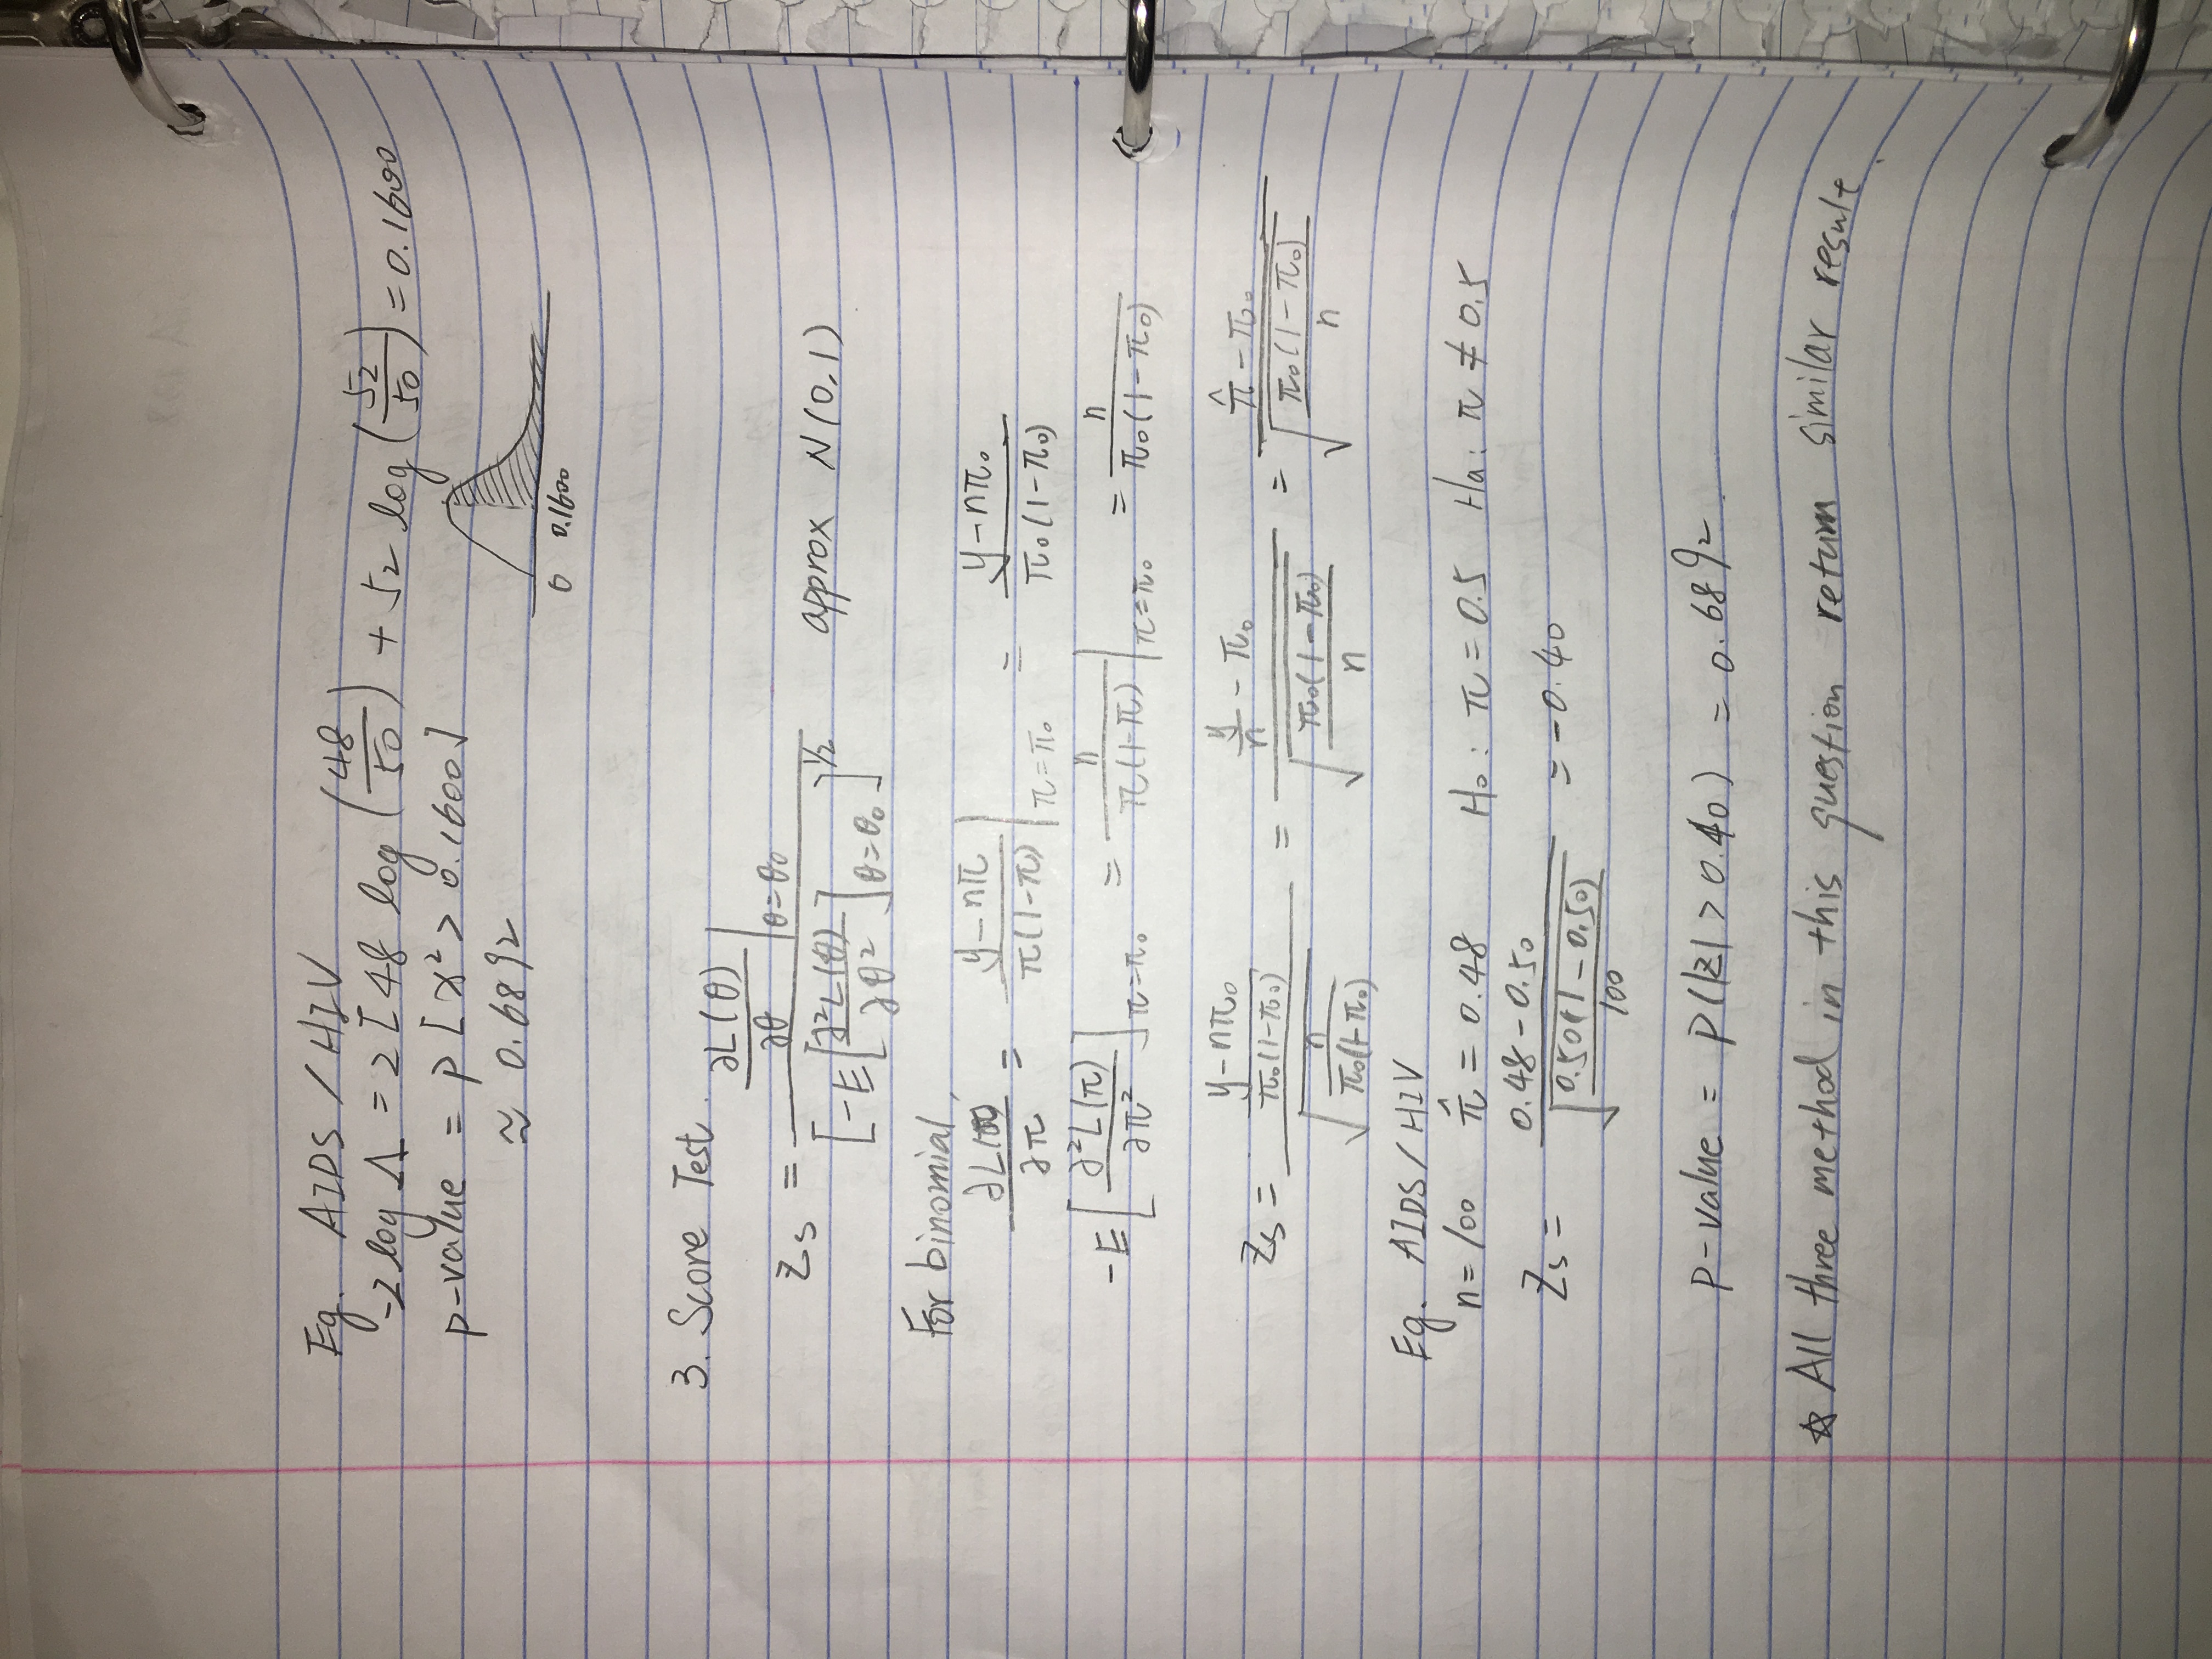 Eg. AIDS / HIV
-2 log Λ = 2 [ 48 log (48/50) + 52 log (52/50) = 0.1600
p-value = P [ χ² > 0.1600 ]
≈ 0.6892
0 0.1600
3. Score Test.
Zs = ∂L(θ)/∂θ |θ=θ₀ / [ -E [ ∂²L(θ)/∂θ² ]θ=θ₀ ]^1/2 approx N(0,1)
For binomial,
∂L(π)/∂π = y-nπ / π(1-π) |π=π₀ = y-nπ₀ / π₀(1-π₀)
-E [ ∂²L(π)/∂π² ]π=π₀ = n / π(1-π) |π=π₀ = n / π₀(1-π₀)
Zs = (y-nπ₀ / π₀(1-π₀)) / √(n / π₀(1-π₀)) = (y/n - π₀) / √(π₀(1-π₀) / n) = (π̂ - π₀) / √(π₀(1-π₀) / n)
Eg. AIDS / HIV
n = 100 π̂ = 0.48 H₀ : π = 0.5 Ha : π ≠ 0.5
Zs = (0.48 - 0.50) / √(0.50(1 - 0.50) / 100) = -0.40
p-value = P(|z| > 0.40) = 0.6892.
☆ All three method in this question return similar result.